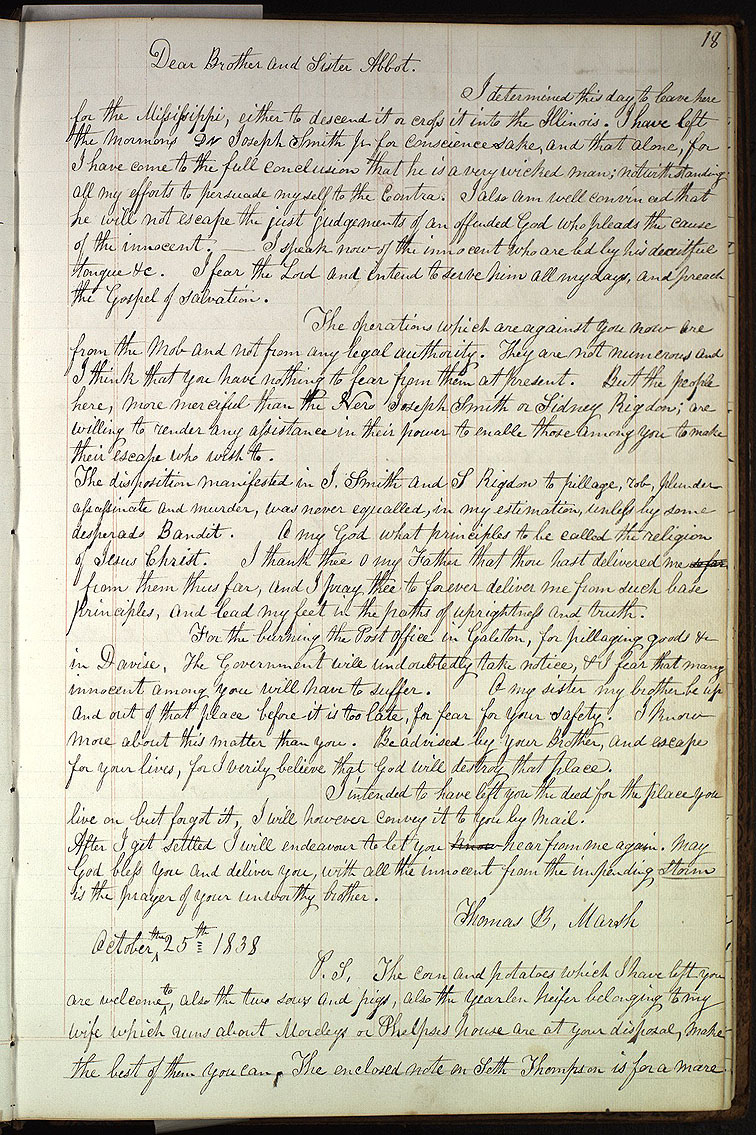 18
Dear Brother and Sister Abbot.
I determined this day to leave here
for the Missisippi, either to descend it or cross it into the Illinois. I have left
the Mormons & Joseph Smith Jr. for conscience sake, and that alone, for
I have come to the full conclusion that he is a very wicked man; notwithstanding
all my efforts to persuade myself to the Contra. I also am well convinced that
he will not escape the just judgements of an offended God who pleads the cause
of the innocent. — I speak now of the innocent who are led by his deceitful
tongue &c. I fear the Lord and intend to serve him all my days, and preach
the Gospel of salvation.
The operations which are against you now are
from the Mob and not from any legal authority. They are not numerous and
I think that you have nothing to fear from them at present. But the people
here, more merciful than the Nero Joseph Smith or Sidney Rigdon; are
willing to render any assistance in their power to enable those among you to make
their escape who wish to.
The disposition manifested in J. Smith and S Rigdon to pillage, rob, plunder
assassinate and murder, was never equalled, in my estimation, unless by some
desperado Bandit. O my God what principles to be called the religion
of Jesus Christ. I thank thee O my Father that thou hast delivered me so far
from them thus far, and I pray thee to forever deliver me from such base
principles, and lead my feet in the paths of uprightness and truth.
For the burning the Post Office in Galeton, for pillaging goods &c
in Davise, The Government will undoubtedly take notice, & I fear that many
innocent among you will have to suffer. O my sister my brother be up
and out of that place before it is too late, for fear for your safety. I know
more about this matter than you. Be advised by your Brother, and escape
for your lives, for I verily believe that God will destroy that place.
I intended to have left you the deed for the place you
live on but forgot it, I will however convey it to you by mail.
After I get settled I will endeavour to let you know hear from me again. May
God bless you and deliver you, with all the innocent from the inpending storm
is the prayer of your unworthy brother.
Thomas B. Marsh
October the 25th 1838
P. S. The corn and potatoes which I have left you
are welcome to, also the two sows and pigs, also the yearlen heifer belonging to my
wife which runs about Morleys or Phelpses house are at your disposal, make
the best of them you can, The enclosed note on Seth Thompson is for a mare